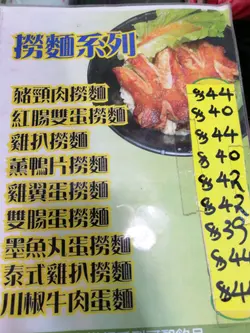 撈麵系列
豬頸肉撈麵 $44
紅腸雙蛋撈麵 $40
雞扒撈麵 $44
薰鴨片撈麵 $40
雞翼蛋撈麵 $42
雙腸蛋撈麵 $42
墨魚丸蛋撈麵 $39
泰式雞扒撈麵
川椒牛肉蛋麵